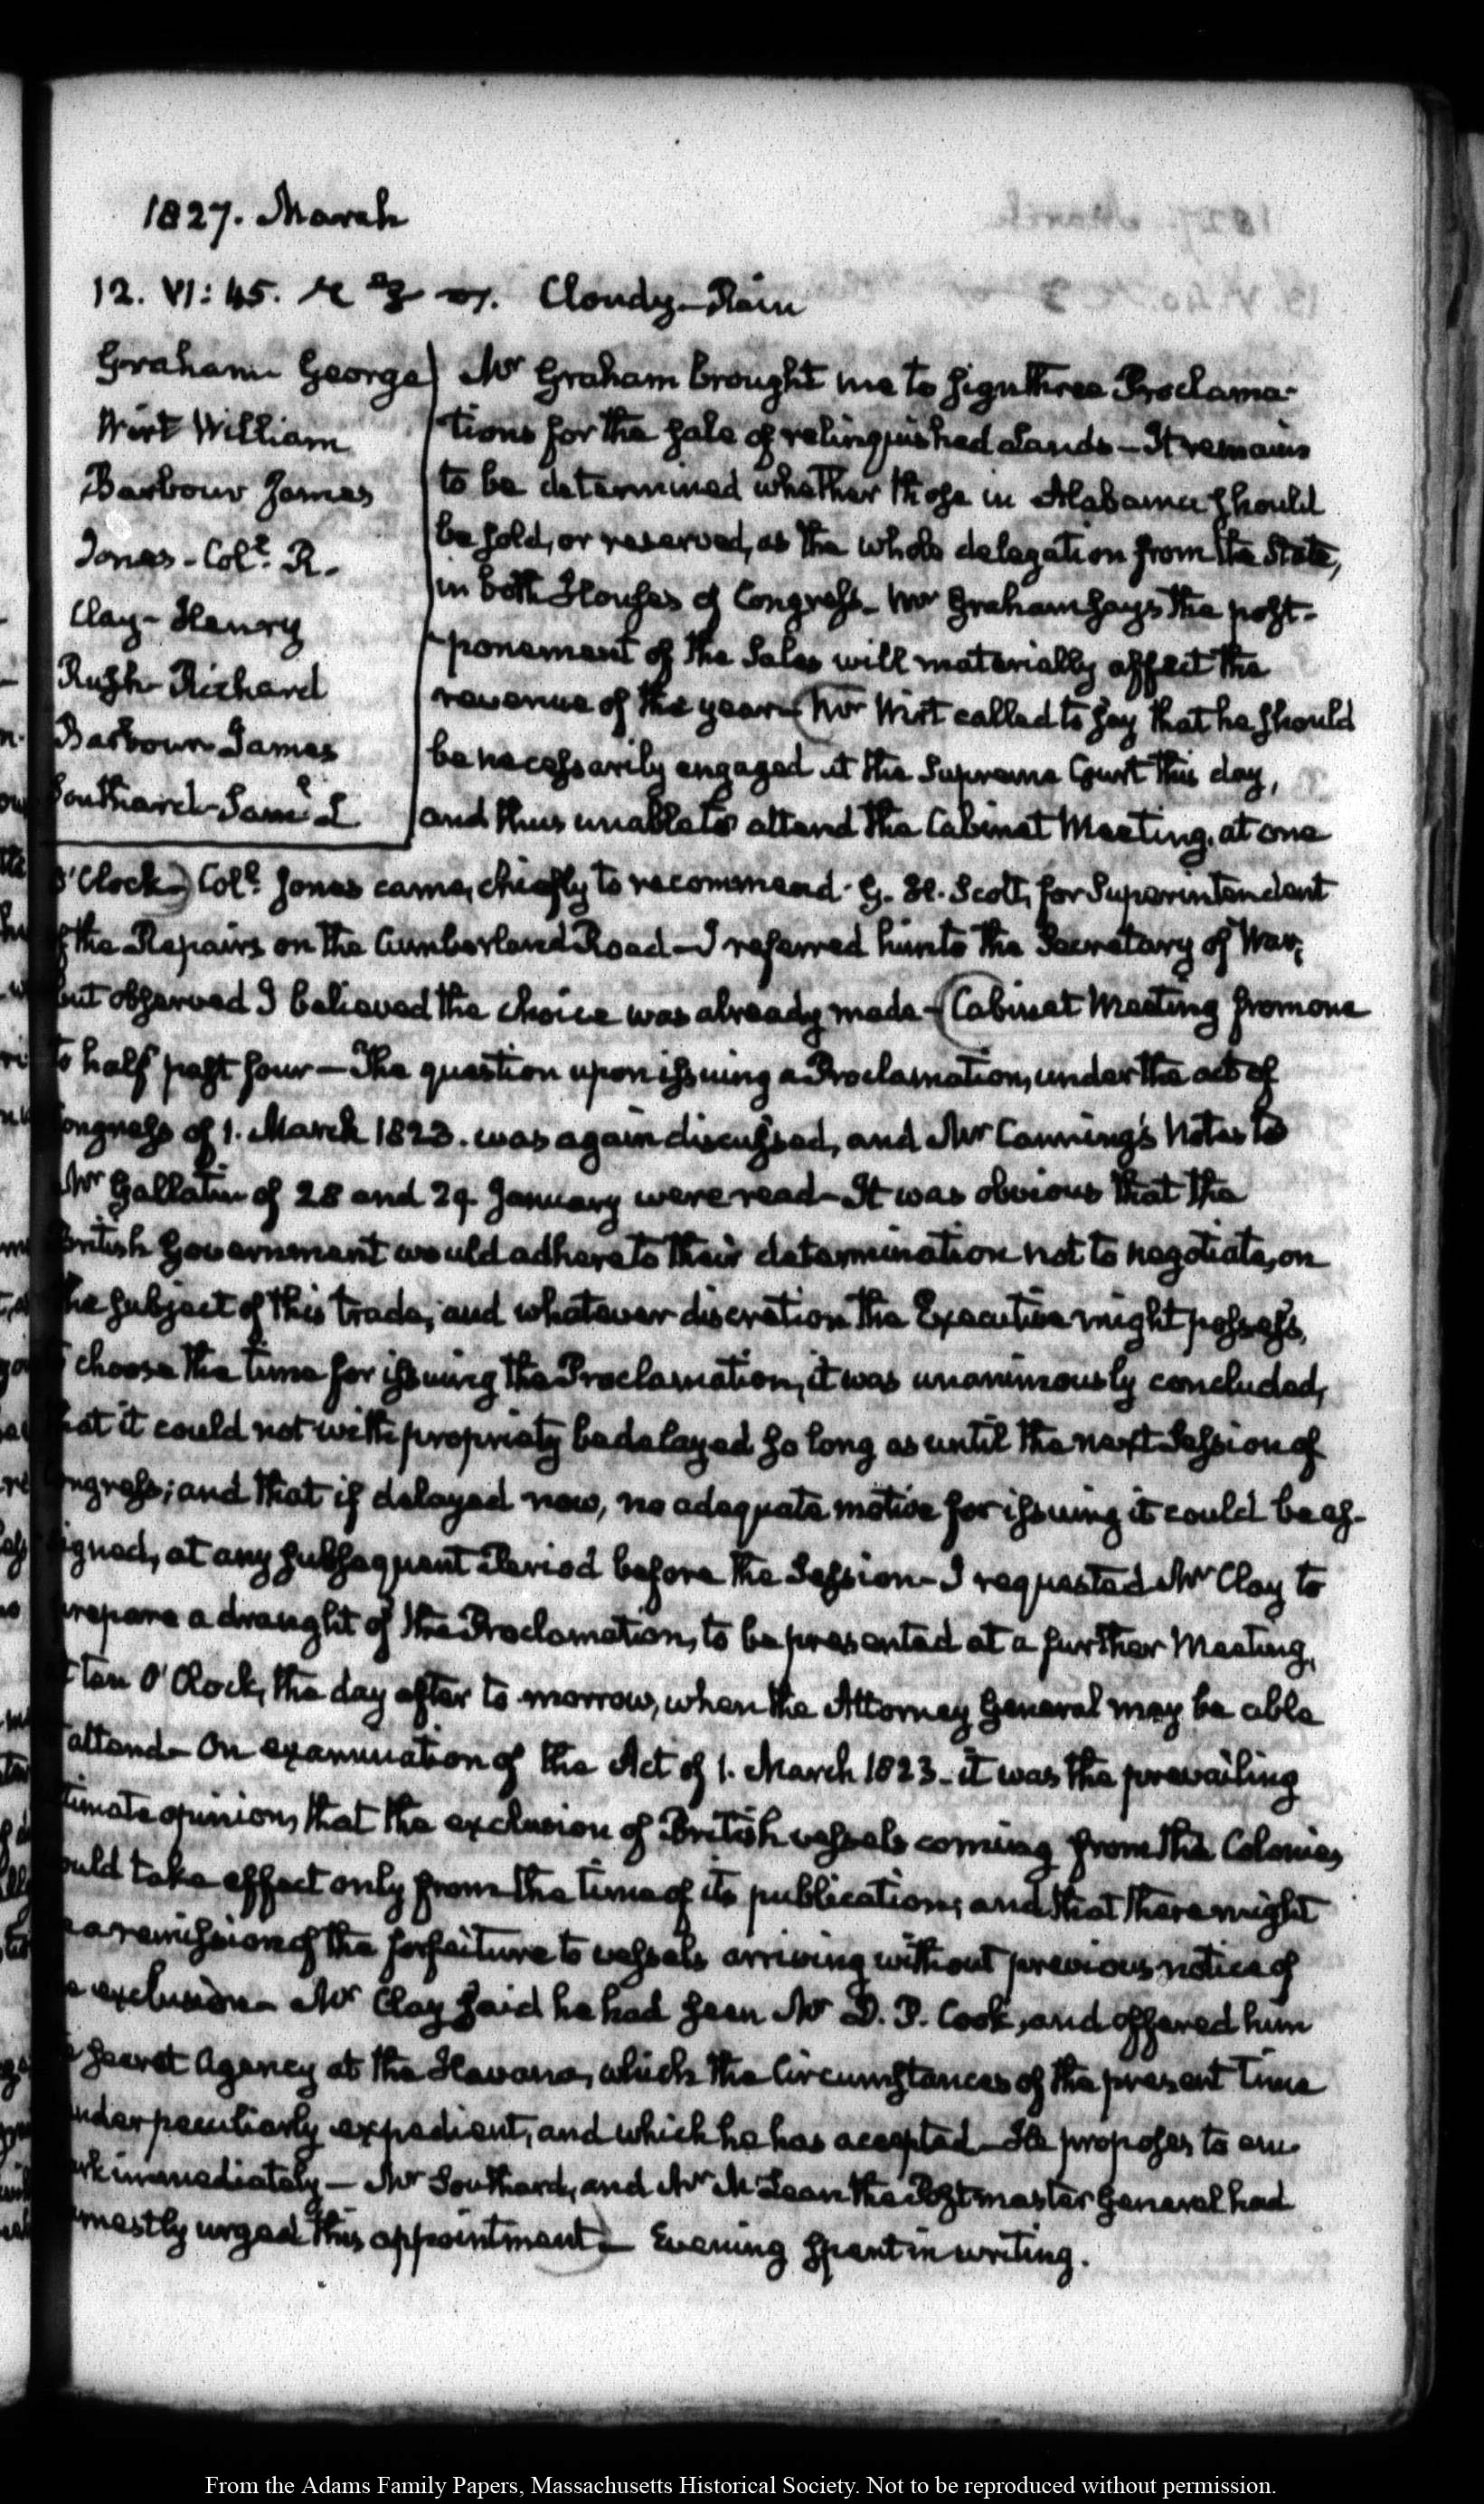 1827. March
12. VI: 45. Cloudy—Rain
Graham George
Wirt William
Barbour James
Jones - Colł. R.
Clay - Henry
Rush - Richard
Barbour James
Southard - Sam.l L
Mr Graham brought me to sign three Proclama-
tions for the sale of relinquished Lands — It remains
to be determined whether those in Alabama should
be sold, or reserved, as the whole delegation from the State,
in both Houses of Congress — Mr Graham says the post-
ponement of the Sales will materially affect the
revenue of the year — Mr Wirt called to say that he should
be necessarily engaged at the Supreme Court this day,
and thus unable to attend the Cabinet Meeting, at one
O'Clock — Coll. Jones came, chiefly to recommend G. H. Scott, for Superintendent
of the Repairs on the Cumberland Road — I referred him to the Secretary of War;
but observed I believed the choice was already made — Cabinet Meeting from one
to half past four — The question upon issuing a Proclamation, under the act of
Congress of 1. March 1823. was again discussed, and Mr Canning's Notes to
Mr Gallatin of 28 and 29 January were read — It was obvious that the
British Government would adhere to their determination not to negotiate, on
the subject of this trade; and whatever discretion the Executive might possess,
choose the time for issuing the Proclamation, it was unanimously concluded,
that it could not with propriety be delayed so long as until the next Session of
Congress; and that if delayed now, no adequate motive for issuing it could be as-
signed, at any subsequent Period before the Session — I requested Mr Clay to
prepare a draught of the Proclamation, to be presented at a further Meeting,
at ten O'Clock, the day after to morrow, when the Attorney General may be able
attend — On examination of the Act of 1. March 1823 — it was the prevailing
timate opinion, that the exclusion of British vessels coming from the Colonies,
ould take effect only from the time of its publication; and that there might
a remission of the forfeiture to vessels arriving without previous notice of
exclusion — Mr Clay said he had seen Mr D. P. Cook, and offered him
secret Agency at the Havana, which the Circumstances of the present time
nder peculiarly expedient, and which he has accepted — He proposes to em-
ark immediately — Mr Southard, and Mr McLean the Postmaster General had
rnestly urged this appointment — Evening spent in writing.
From the Adams Family Papers, Massachusetts Historical Society. Not to be reproduced without permission.